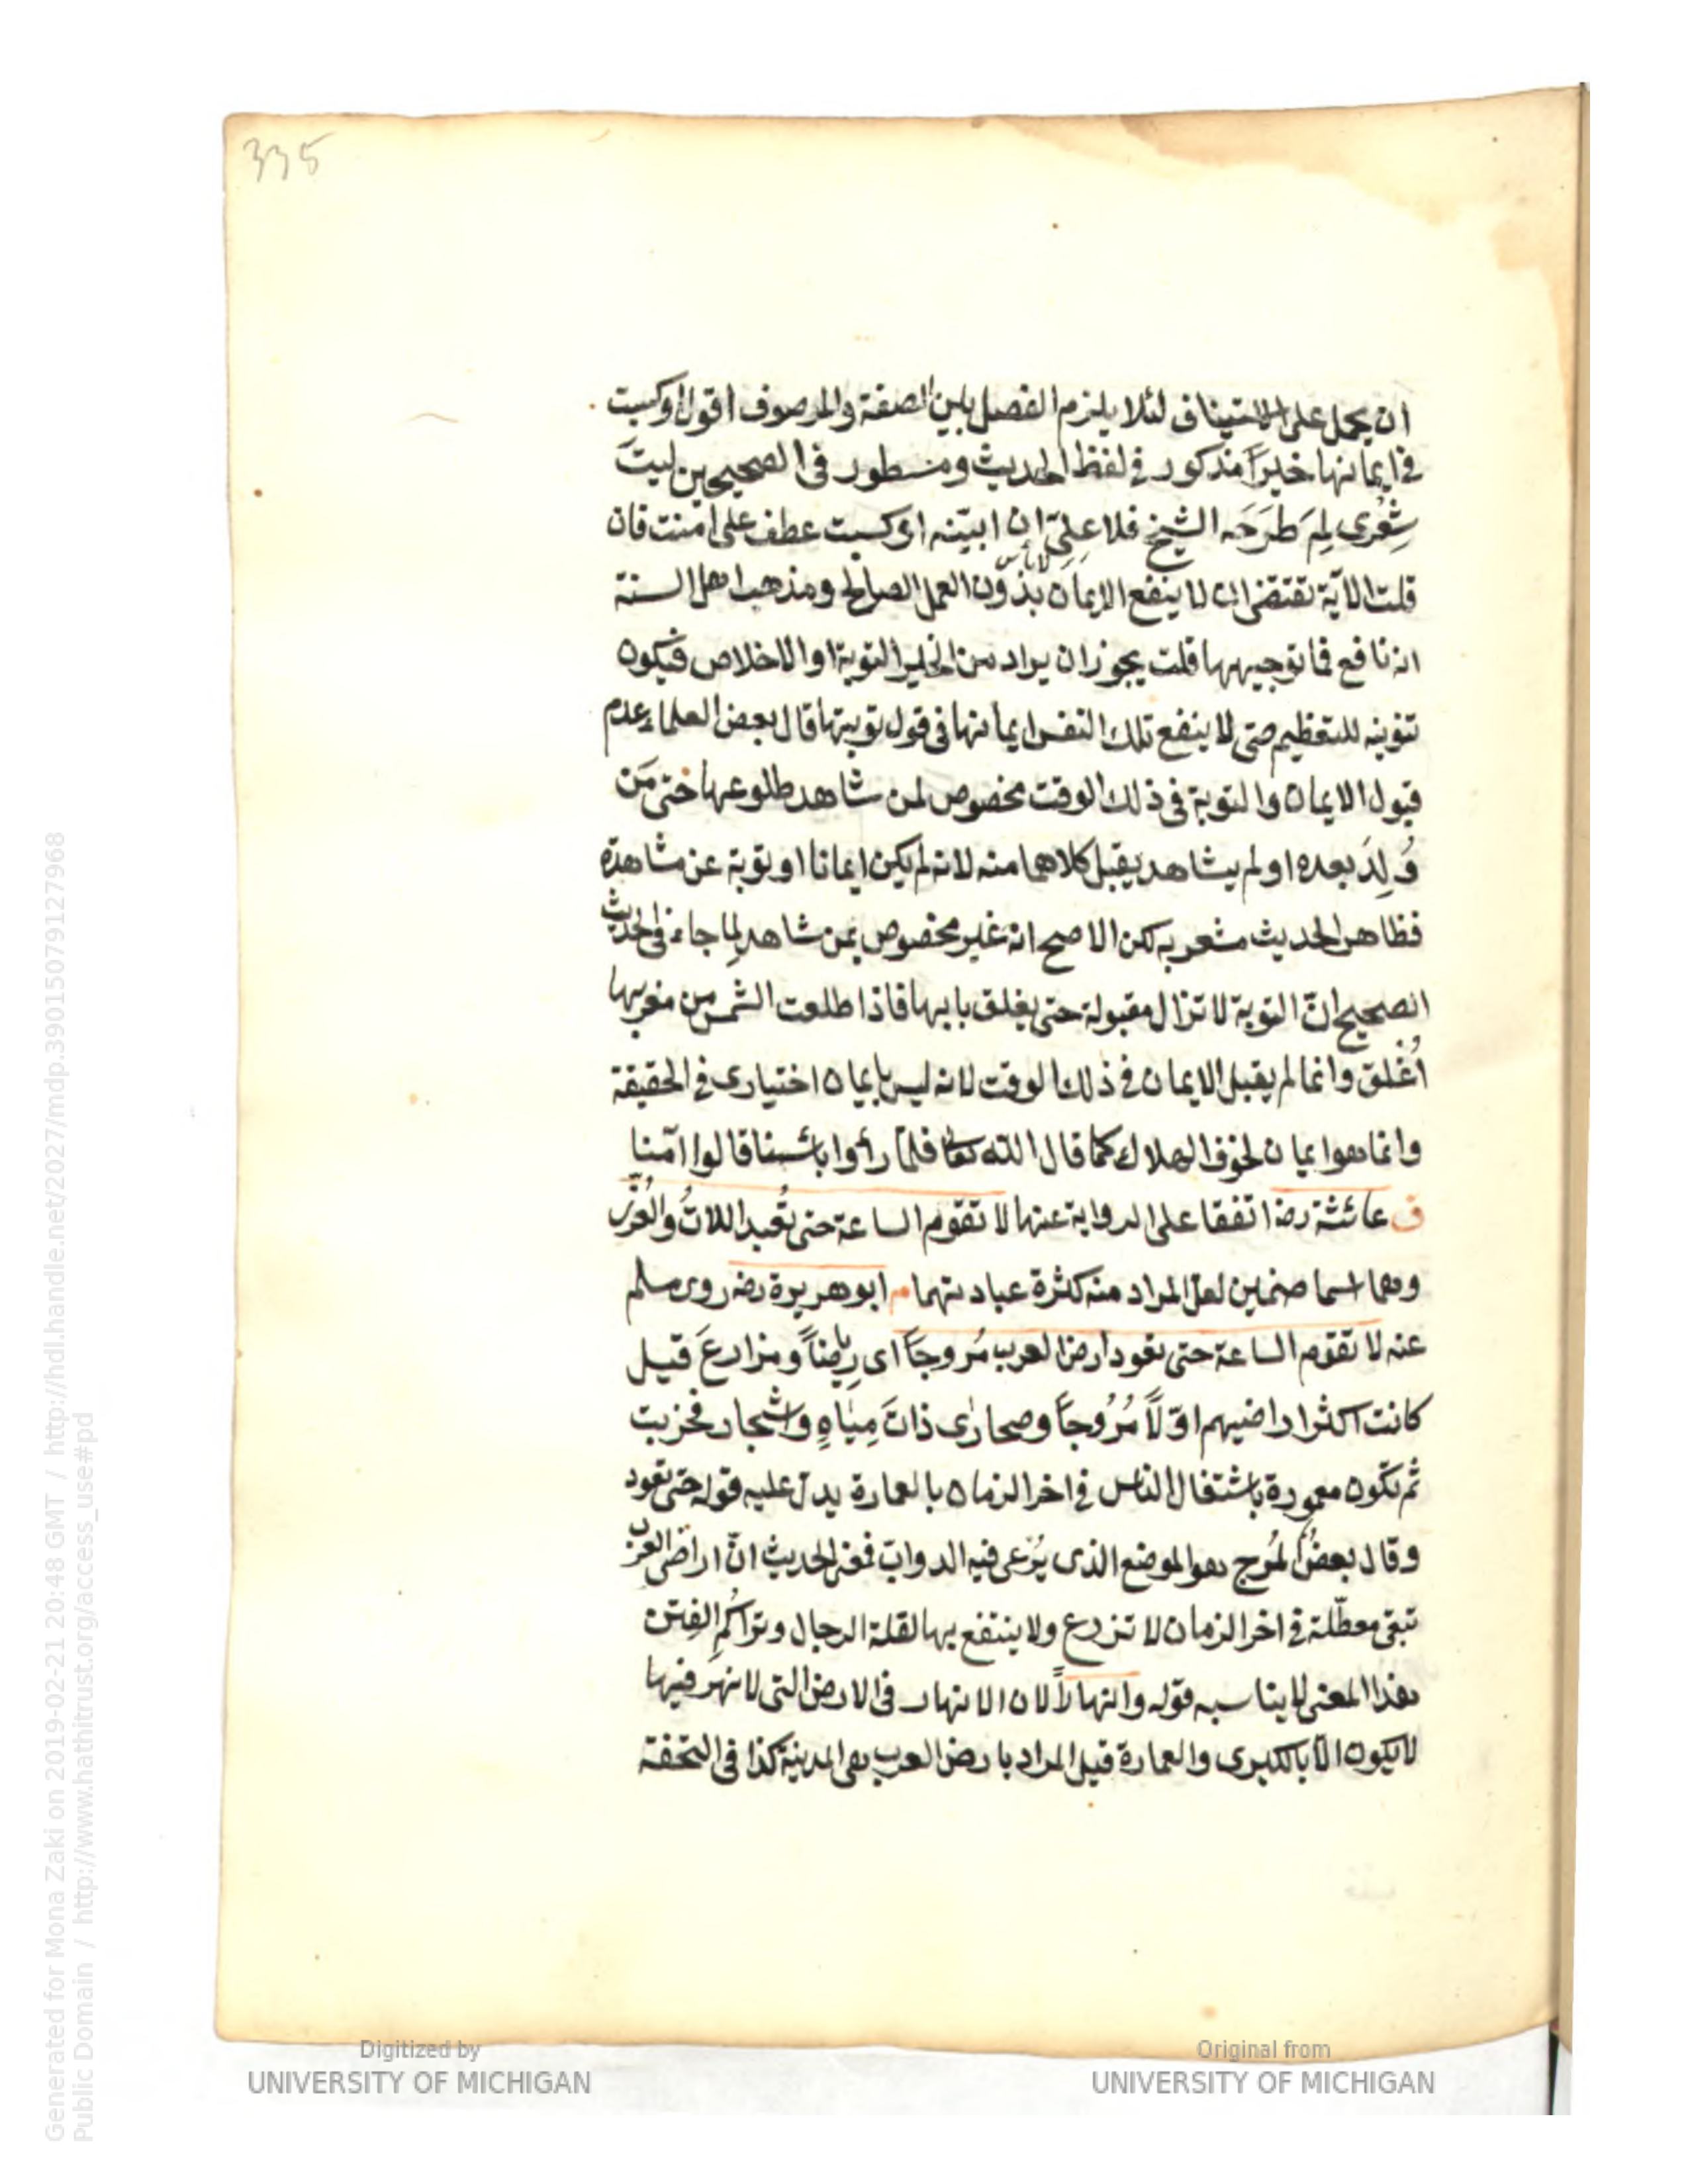 335
ان يحمل على الاستيناف لئلا يلزم الفصل بين الصفة والموصوف اقول او كسبت
في ايمانها خيرًا مذكور في لفظ الحديث ومسطور في الصحيحين ليتَ
شِعْرى لِمَ طَرَحَه الشيخ فلا علىّ ان ابيّنه او كسبت عطف على آمنت فان
لا بأس
قلت الآية تقتضى ان لا ينفع الايمان بدون العمل الصالح ومذهب اهل السنة
انه نافع فما توجيهها قلت يجوز ان يراد من الخير التوبة او الاخلاص فيكون
تنوينه للتعظيم حتى لا ينفع تلك النفس ايمانها في قول توبتها قال بعض العلماء عدم
قبول الايمان والتوبة في ذلك الوقت مخصوص لمن شاهد طلوعها حتى مَن
وُلِدَ بعده او لم يشاهد يقبل كلاهما منه لانه لم يكن ايمانا او توبة عن مشاهدة
فظاهر الحديث مشعر به لكن الاصح انه غير مخصوص بمن شاهد لِما جاء في الحديث
الصحيح انّ التوبة لا تزال مقبولة حتى يغلق بابها فاذا طلعت الشمس من مغربها
اُغْلق وانما لم يقبل الايمان في ذلك الوقت لانه ليس بايمان اختيارى في الحقيقة
وانما هو ايمان لخوف الهلاك كما قال الله تعالى فلمّا رأوا بأسنا قالوا آمنا
ق عائشة رضـ اتفقا على الرواية عنها لا تقوم الساعة حتى تُعبد اللاتُ والعُزّى
وهما اسما صنمين لعل المراد منه كثرة عبادتهما م ابو هريرة رضـ روى مسلم
عنه لا تقوم الساعة حتى تعود ارض العرب مُروجًا اى رياضًا ومزارعَ قيل
كانت اكثر اراضيهم اوّلاً مُرُوجًا وصحارى ذاتَ مِياهٍ واشجار فخربت
ثم تكون معمورة باشتغال الناس في اخر الزمان بالعمارة يدل عليه قوله حتى تعود
وقال بعضٌ المرج هو الموضع الذى يُرعى فيه الدوابّ فمعنى الحديث انّ اراضى العرب
تبقى معطّلة في اخر الزمان لا تزرع ولا ينتفع بها لقلة الرجال وتراكُم الفِتن
هذا المعنى لا يناسبه قوله وانهاراً لان الانهار في الارض التى لا نهَر فيها
لا يكون الّا بالكبرى والعمارة قيل المراد بارض العرب هى المدينة كذا في التحفة
Digitized by
UNIVERSITY OF MICHIGAN
Original from
UNIVERSITY OF MICHIGAN
Generated for Mona Zaki on 2019-02-21 20:48 GMT / http://hdl.handle.net/2027/mdp.39015079127968
Public Domain / http://www.hathitrust.org/access_use#pd